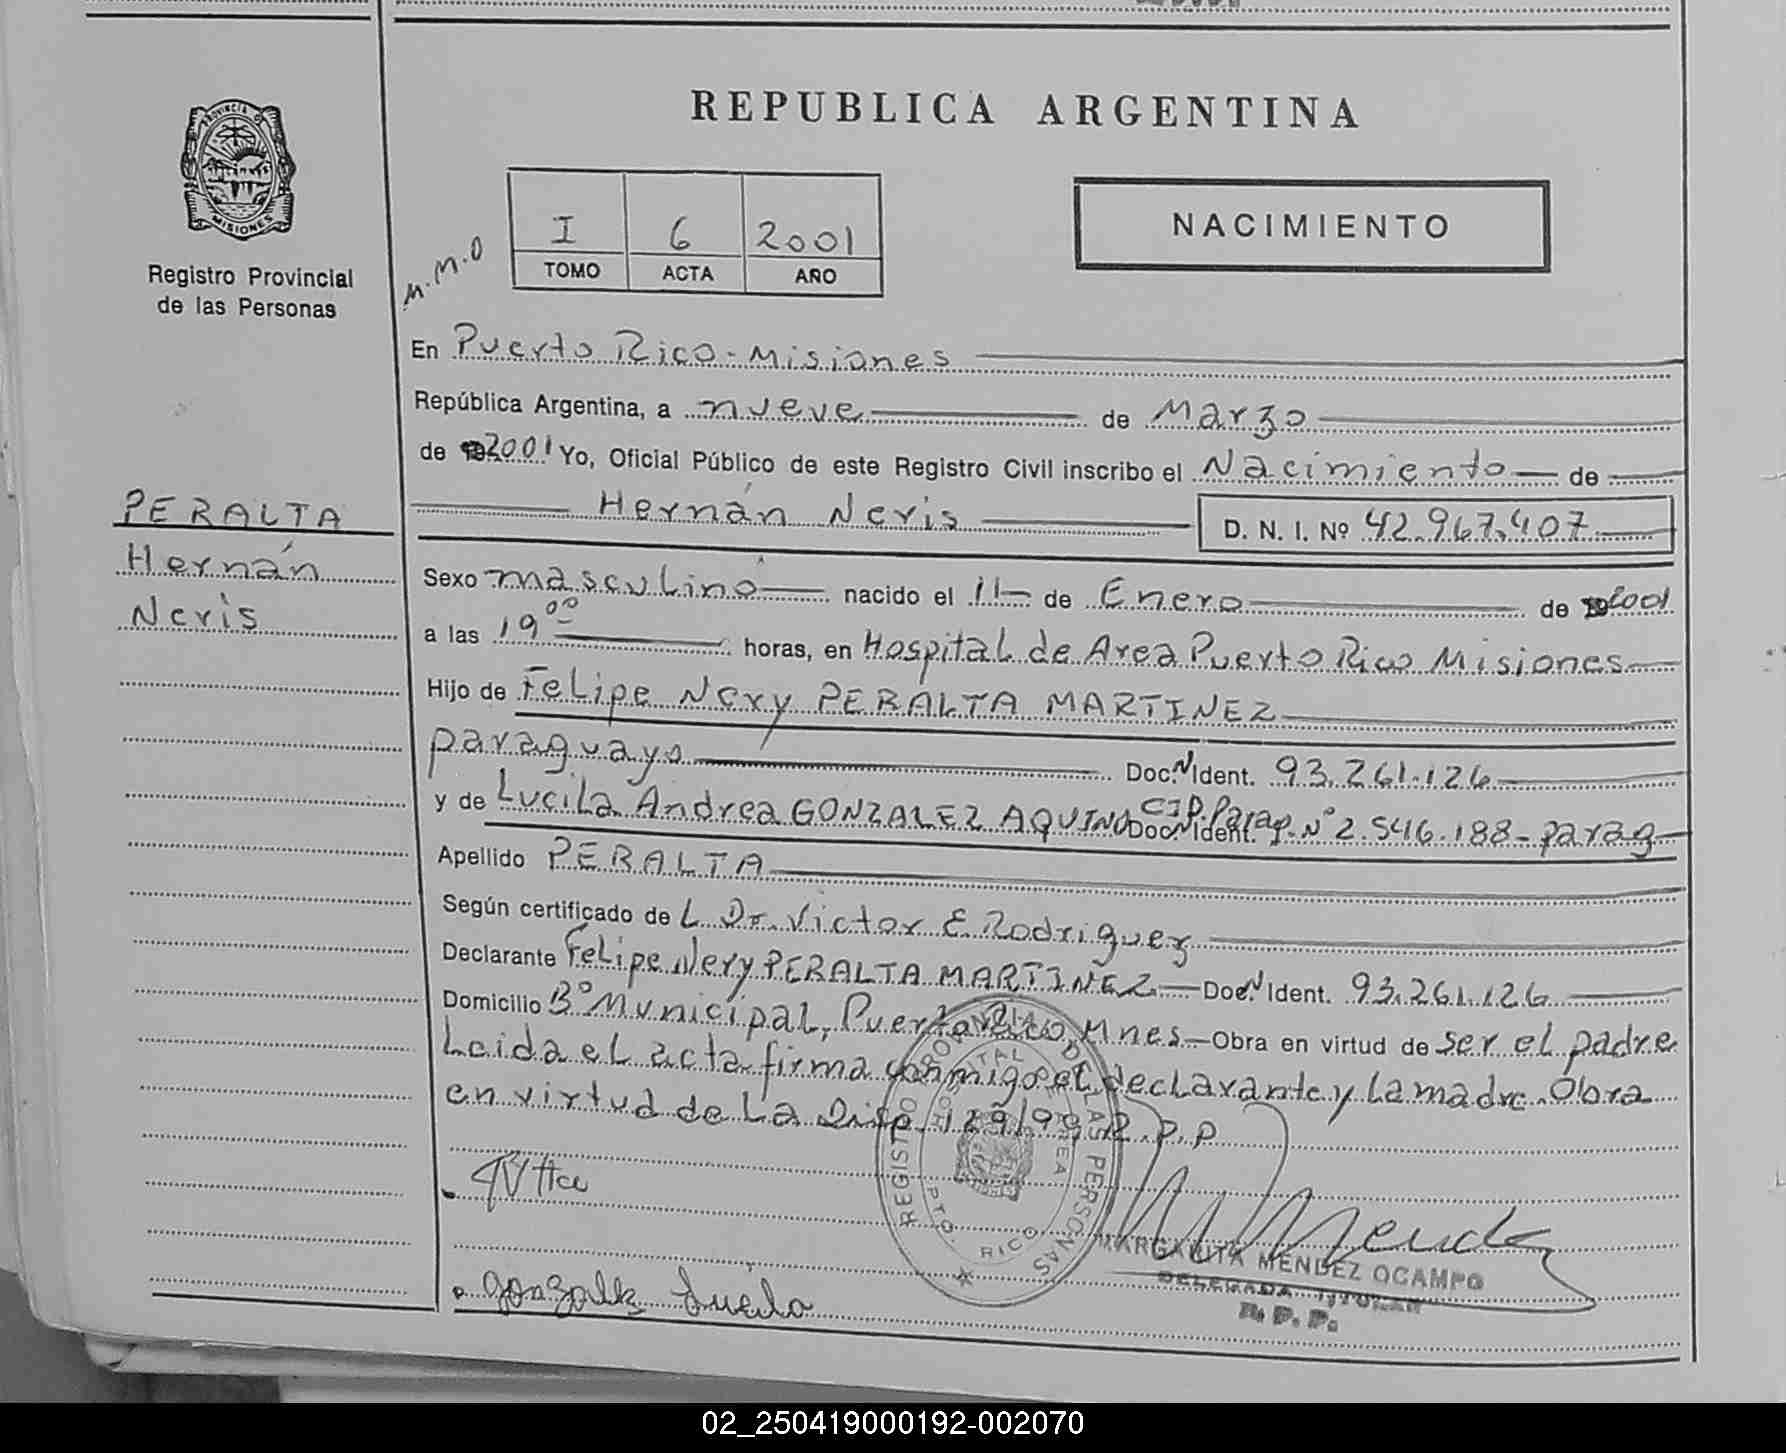 REPUBLICA ARGENTINA
PROVINCIA DE
MISIONES
Registro Provincial
de las Personas
M.M.O
I 6 2001
TOMO ACTA AÑO
NACIMIENTO
En Puerto Rico - Misiones
República Argentina, a nueve de Marzo
de 2001 Yo, Oficial Público de este Registro Civil inscribo el Nacimiento de
Hernán Neris D. N. I. Nº 42.967.407
PERALTA
Hernán
Neris
Sexo masculino nacido el 11 de Enero de 2001
a las 19 00 horas, en Hospital de Area Puerto Rico Misiones
Hijo de Felipe Nery PERALTA MARTINEZ
paraguayo Doc. N Ident. 93.261.126
y de Lucila Andrea GONZALEZ AQUINO Doc. N Ident. C.I.P. Parag. Nº 2.546.188 - parag
Apellido PERALTA
Según certificado de L Dr. Victor E. Rodriguez
Declarante Felipe Nery PERALTA MARTINEZ Doc. N Ident. 93.261.126
Domicilio Bº Municipal, Puerto Rico, Mnes. Obra en virtud de ser el padre
Leida el acta firma conmigo el declarante y la madre. Obra
en virtud de La Disp. 129/99 R.P.P
REGISTRO PROVINCIAL DE LAS PERSONAS
HOSPITAL AREA
PTO. RICO
Gonzalez Lucila
MARGARITA MENDEZ OCAMPO
DELEGADA TITULAR
R. P. P.
02_250419000192-002070